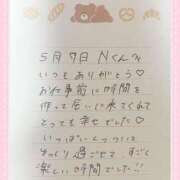 5月7日 Nくん
いつもありがとう♡
お仕事前に時間を
作って会いに来てくれて
とっても幸せでした♡
いっぱい
ゆっくり過ごせて、すごく
楽しい時間でした!!